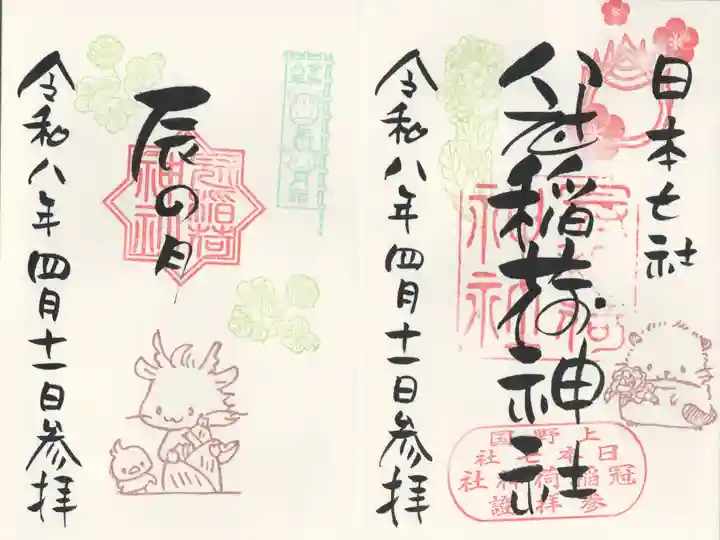 日本七社
冠稲荷神社
令和八年四月十一日参拝
上野国
日本七社
冠稲荷神社
参拝證
辰の月
冠稲荷
神社
令和八年四月十一日参拝